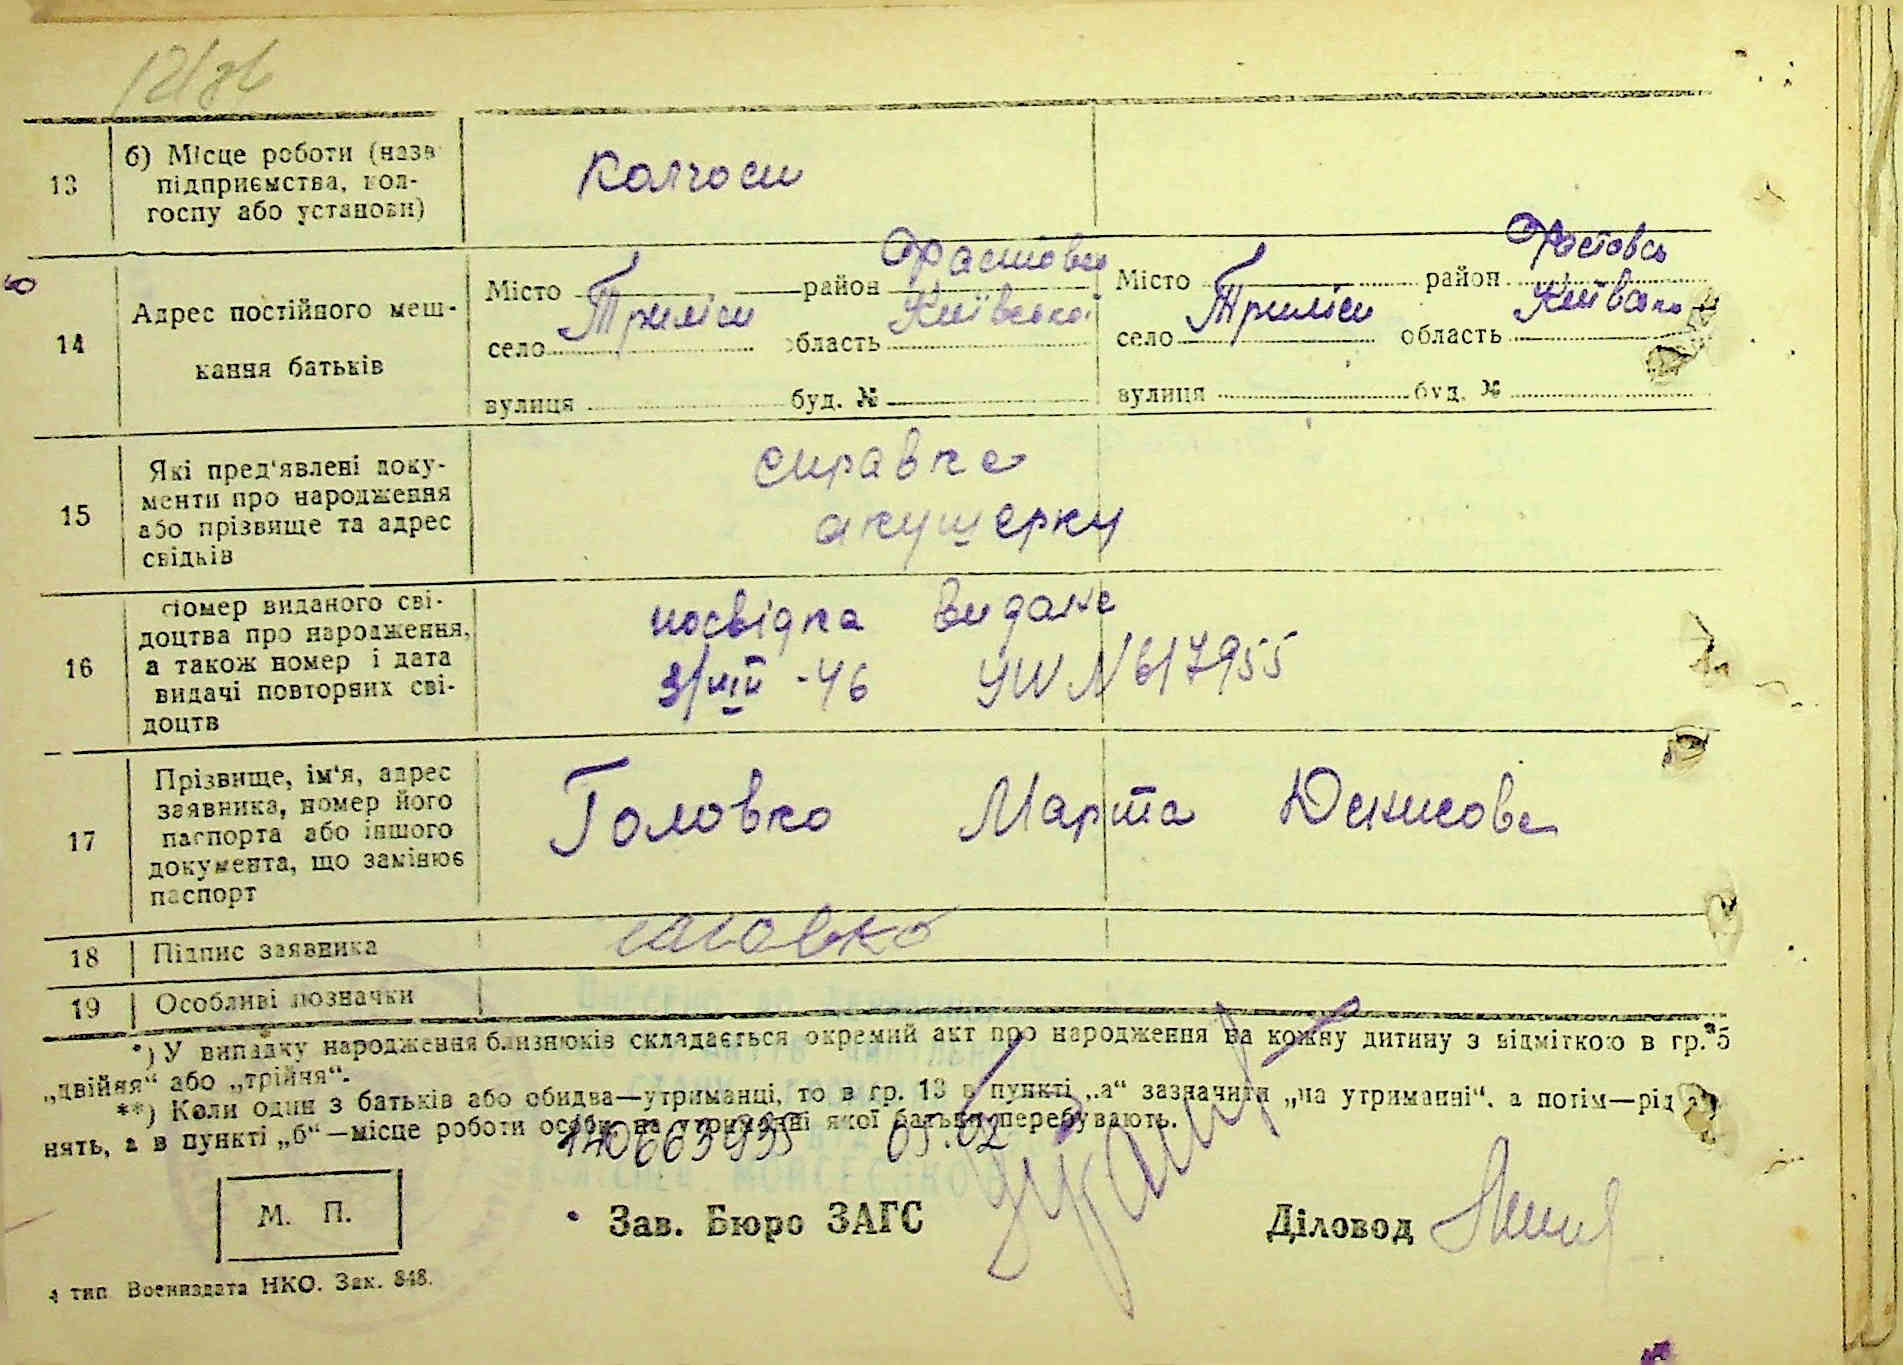 13
б) Місце роботи (назв
підприємства, кол-
госпу або установи)
колгосп
14
Адрес постійного меш-
кання батьків
Місто район Фастовсь
село Триліси область Київської
вулиця буд. №
Місто район Фастовсь
село Триліси область Київсько
вулиця буд. №
15
Які пред'явлені доку-
менти про народження
або прізвище та адрес
свідків
справка
акушерки
16
Номер виданого сві-
доцтва про народження,
а також номер і дата
видачі повторних сві-
доцтв
посвідка видана
3/VIII -46 УШ N 617955
17
Прізвище, ім'я, адрес
заявника, номер його
паспорта або іншого
документа, що замінює
паспорт
Головко Марта Юхимова
18 Підпис заявника головко
19 Особливі позначки
*) У випадку народження близнюків складається окремий акт про народження на кожну дитину з відміткою в гр. 5
„двійня“ або „трійня“.
**) Коли один з батьків або обидва—утриманці, то в гр. 13 в пункті „а“ зазначити „на утриманні“, а потім—рід за
нять, а в пункті „б“—місце роботи особи, на утриманні якої батьки перебувають.
М. П.
Зав. Бюро ЗАГС
Діловод
тип Воениздата НКО. Зак. 848.